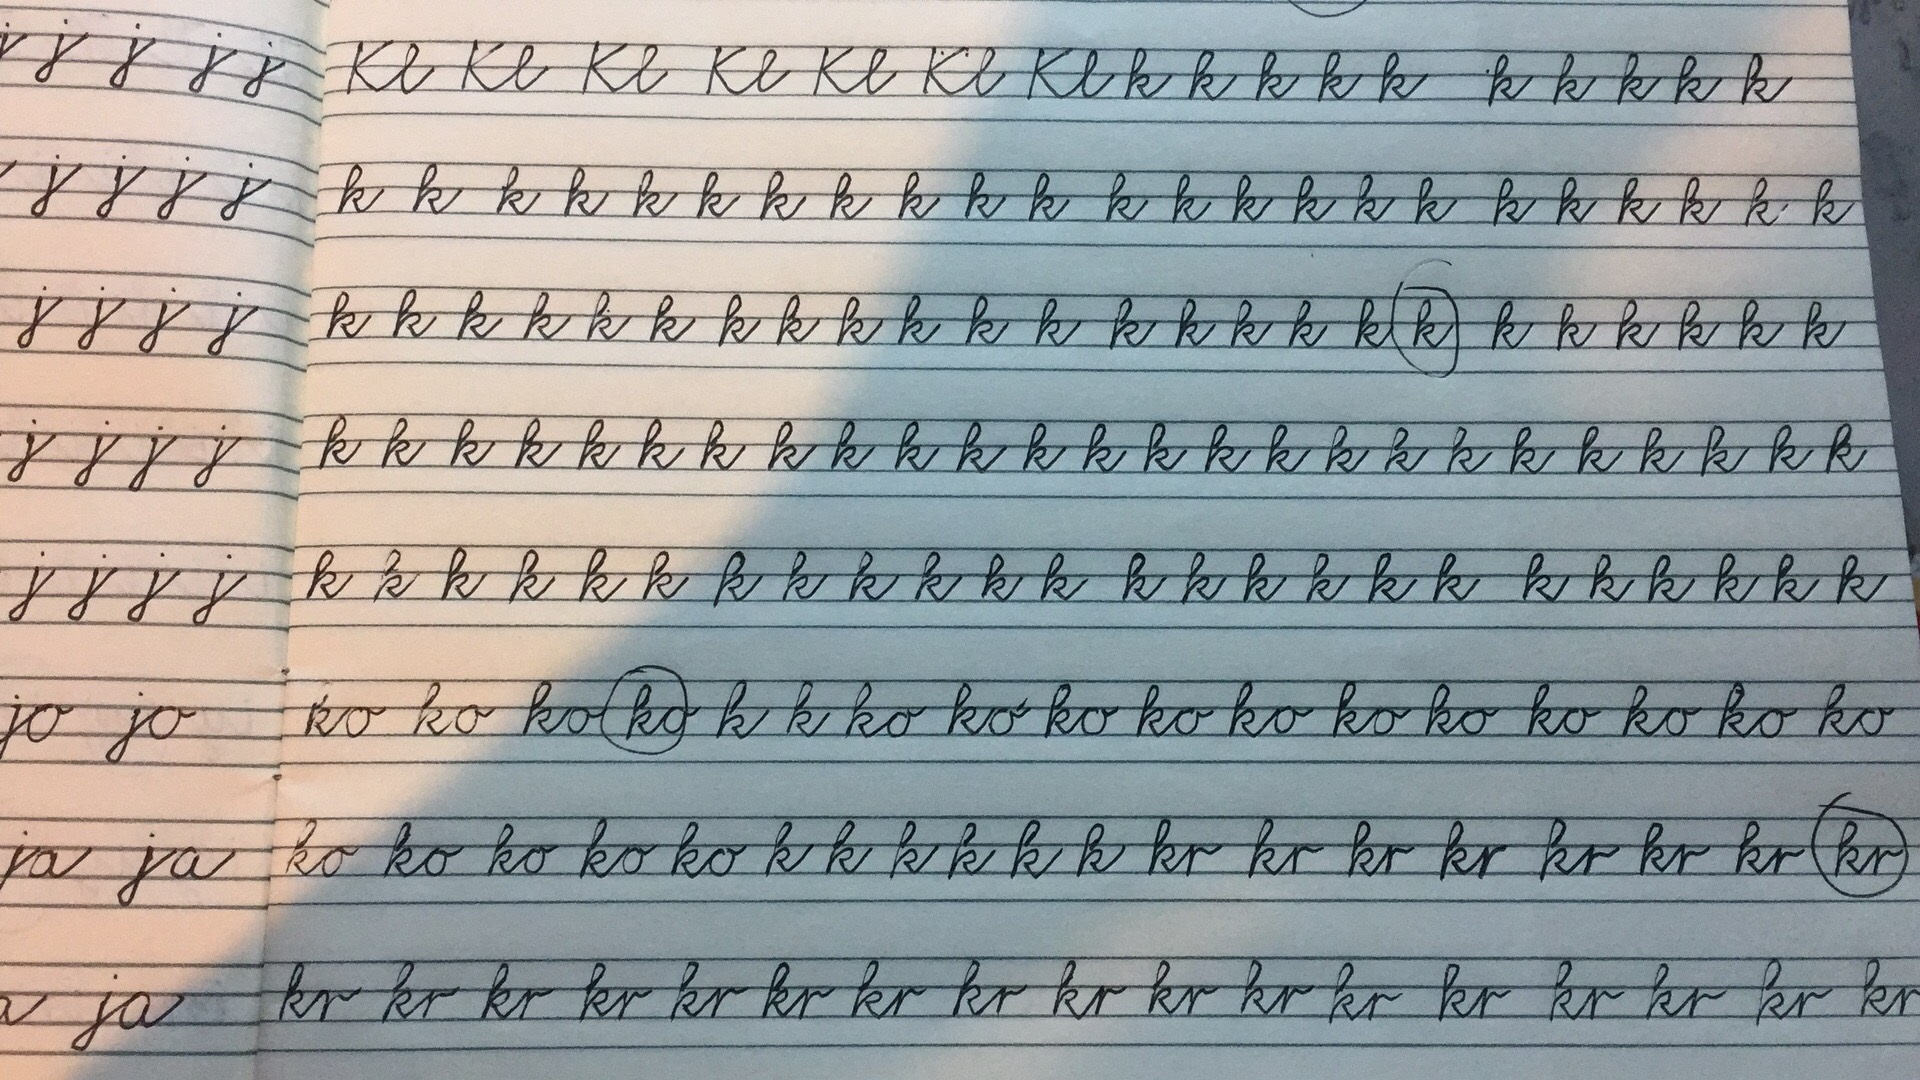 j j j j
j j j j
j j j j
j j j j
j j j j
jo jo
ja ja
ja
Kl Kl Kl Kl Kl Kl Kl k k k k k k k k k k
k k k k k k k k k k k k k k k k k k k k k k k
k k k k k k k k k k k k k k k k k k k k k k k k
k k k k k k k k k k k k k k k k k k k k k k k k k
k k k k k k k k k k k k k k k k k k k k k k k k
ko ko ko ko k k ko ko ko ko ko ko ko ko ko ko ko
ko ko ko ko ko k k k k k k kr kr kr kr kr kr kr kr
kr kr kr kr kr kr kr kr kr kr kr kr kr kr kr kr kr